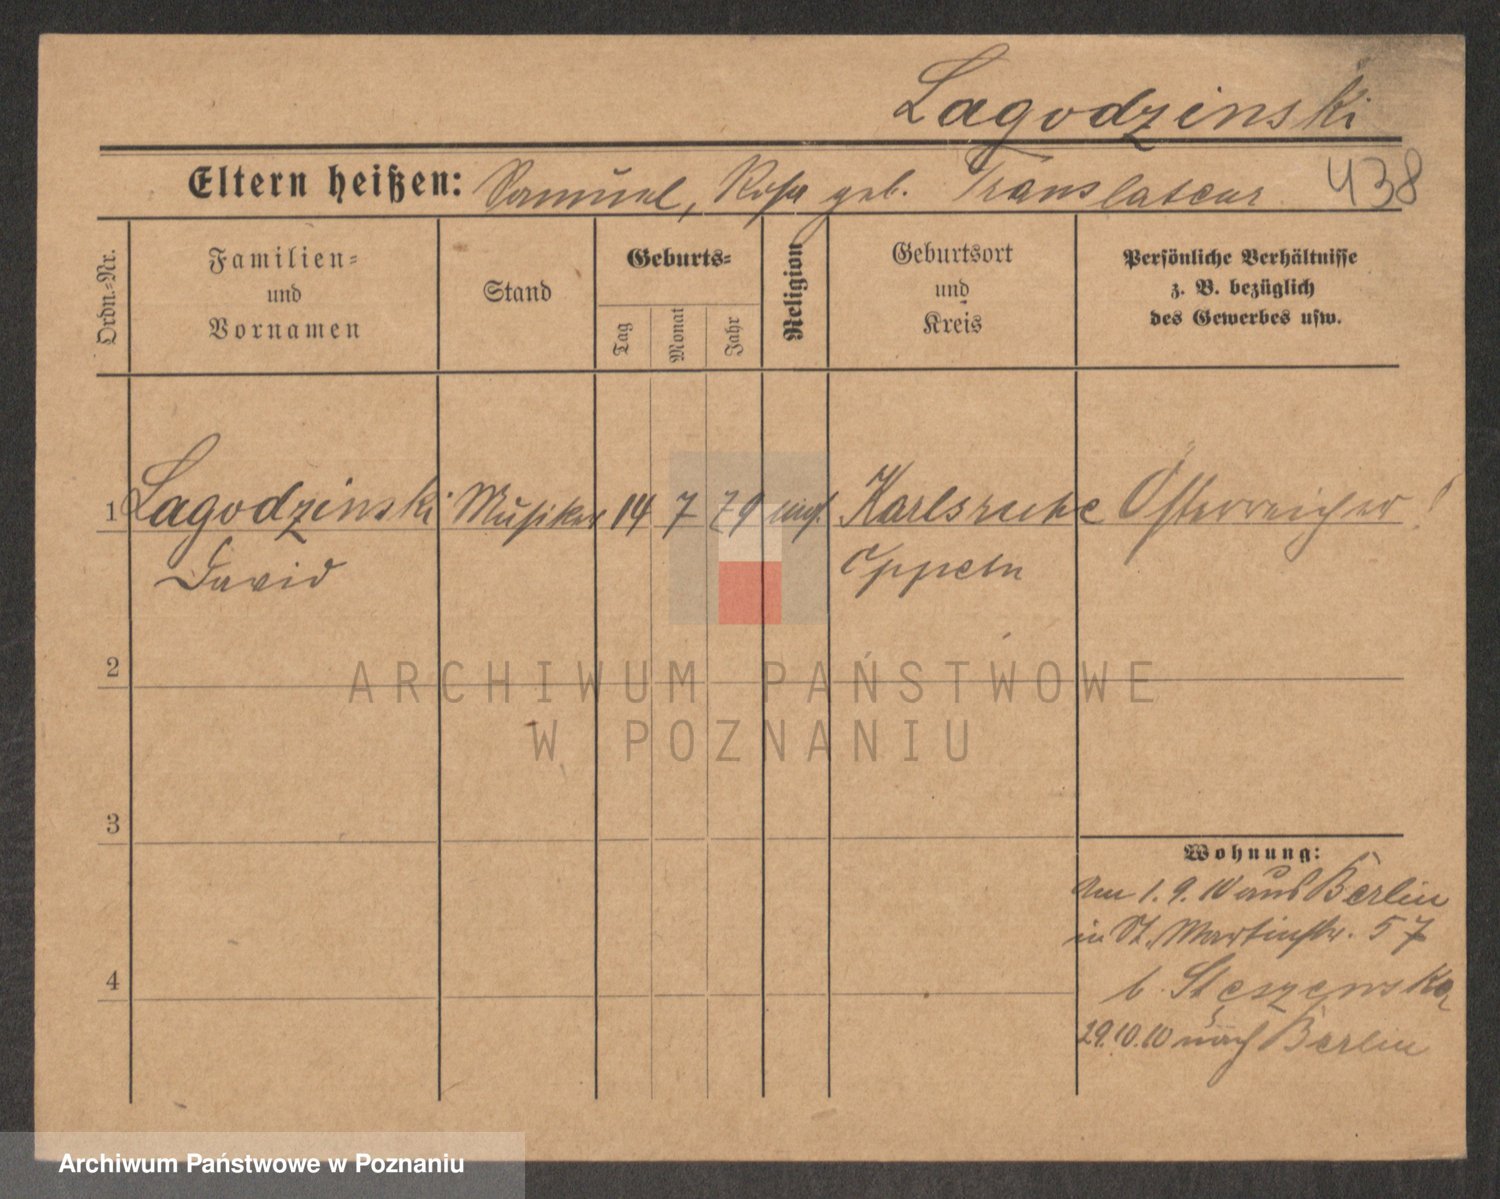 Lagodzinski
Eltern heißen: Samuel, Rosa geb. Translateur 438
Ordn.-Nr.
Familien-
und
Vornamen
Stand
Geburts-
Tag
Monat
Jahr
Religion
Geburtsort
und
Kreis
Persönliche Verhältnisse
z. B. bezüglich
des Gewerbes usw.
1 Lagodzinski Musiker 14 7 79 Karlsruhe Österreicher!
David Oppeln
2
ARCHIWUM PAŃSTWOWE
W POZNANIU
3
Wohnung:
Am 1.9.10 aus Berlin
in St. Martinstr. 57
4
b. Stęszewska
29.10.10 nach Berlin
Archiwum Państwowe w Poznaniu